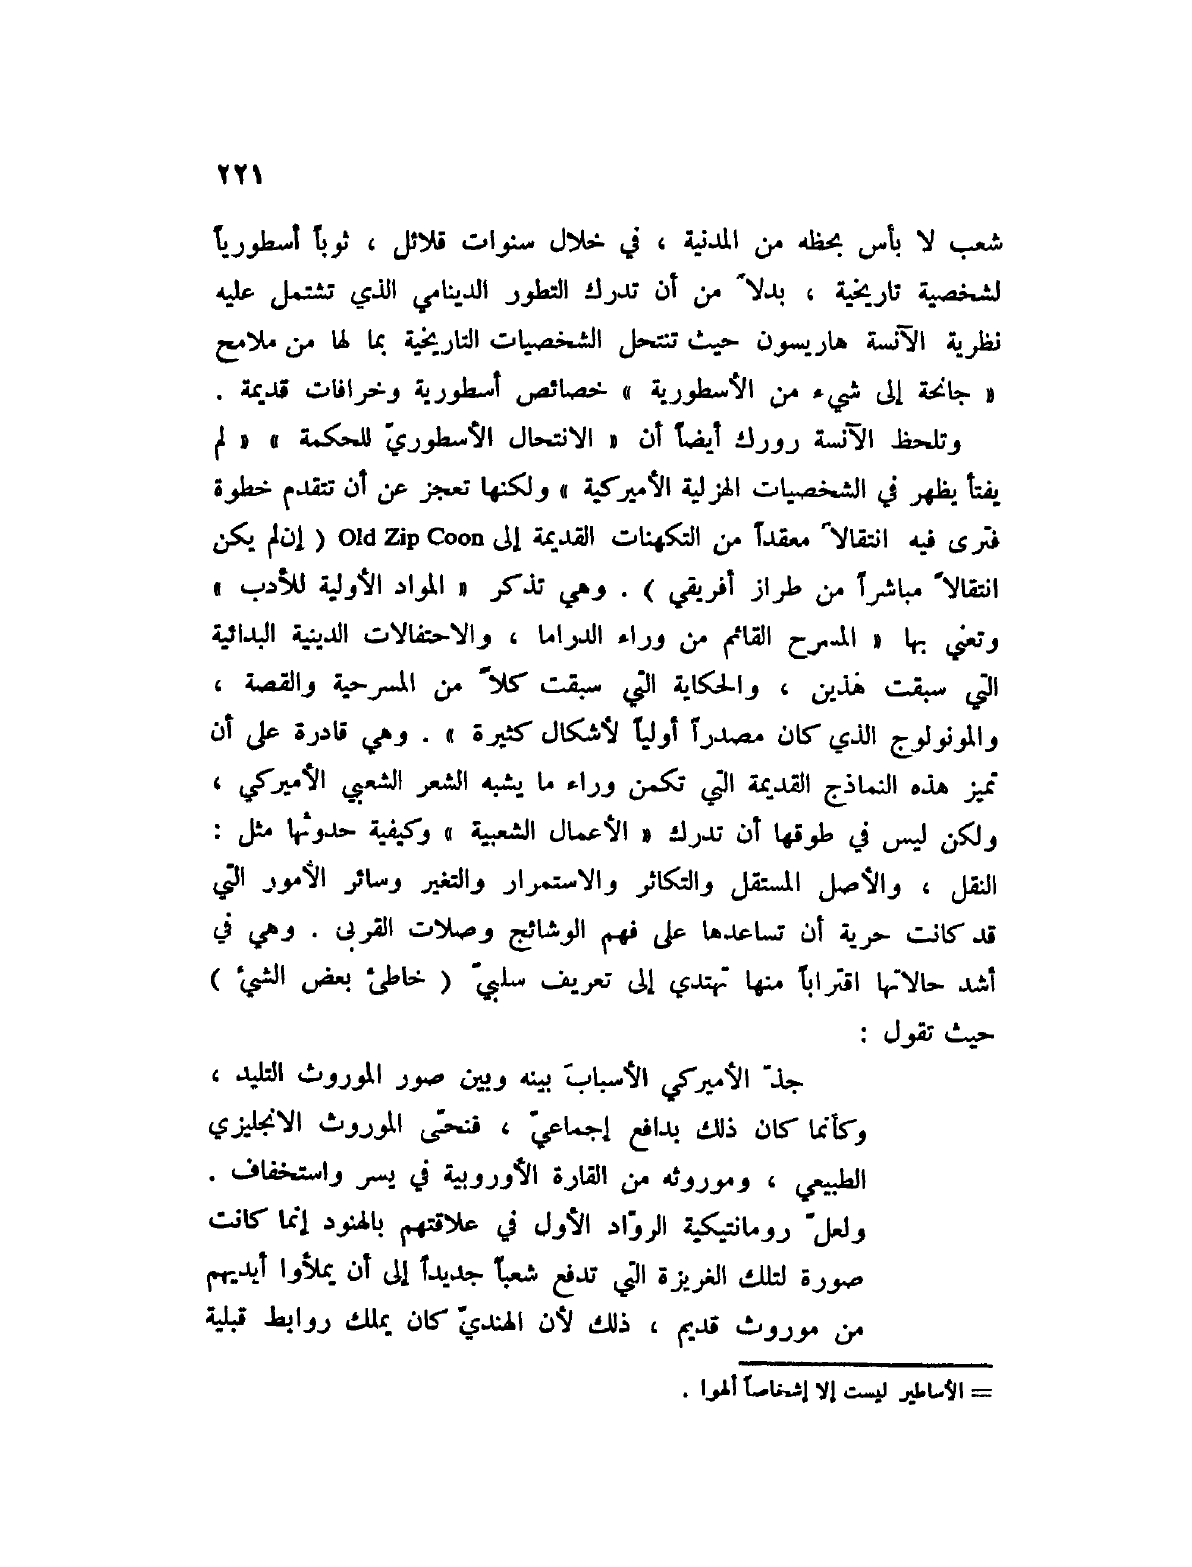 ٢٢١
شعب لا بأس بحظه من المدنية ، في خلال سنوات قلائل ، ثوباً أسطورياً
لشخصية تاريخية ، بدلاً من أن تدرك التطور الدينامي الذي تشتمل عليه
نظرية الآنسة هاريسون حيث تنتحل الشخصيات التاريخية بما لها من ملامح
« جانحة إلى شيء من الأسطورية » خصائص أسطورية وخرافات قديمة .
وتلحظ الآنسة رورك أيضاً أن « الانتحال الأسطوريّ للحكمة » « لم
يفتأ يظهر في الشخصيات الهزلية الأميركية » ولكنها تعجز عن أن تتقدم خطوة
فترى فيه انتقالاً معقداً من التكهنات القديمة إلى Old Zip Coon ( إن لم يكن
انتقالاً مباشراً من طراز أفريقي ) . وهي تذكر « المواد الأولية للأدب »
وتعني بها « المسرح القائم من وراء الدراما ، والاحتفالات الدينية البدائية
التي سبقت هٰذين ، والحكاية التي سبقت كلاً من المسرحية والقصة ،
والمونولوج الذي كان مصدراً أولياً لأشكال كثيرة » . وهي قادرة على أن
تميز هذه النماذج القديمة التي تكمن وراء ما يشبه الشعر الشعبي الأميركي ،
ولكن ليس في طوقها أن تدرك « الأعمال الشعبية » وكيفية حدوثها مثل :
النقل ، والأصل المستقل والتكاثر والاستمرار والتغير وسائر الأمور التي
قد كانت حرية أن تساعدها على فهم الوشائج وصلات القربى . وهي في
أشد حالاتها اقتراباً منها تهتدي إلى تعريف سلبيّ ( خاطئ بعض الشيئ )
حيث تقول :
جذّ الأميركي الأسبابَ بينه وبين صور الموروث التليد ،
وكأنما كان ذلك بدافع إجماعيّ ، فنحّى الموروث الانجليزي
الطبيعي ، وموروثه من القارة الأوروبية في يسر واستخفاف .
ولعلّ رومانتيكية الروّاد الأول في علاقتهم بالهنود إنما كانت
صورة لتلك الغريزة التي تدفع شعباً جديداً إلى أن يملأوا أيديهم
من موروث قديم ، ذلك لأن الهنديّ كان يملك روابط قبلية
= الأساطير ليست إلا إشخاصاً ألهوا .